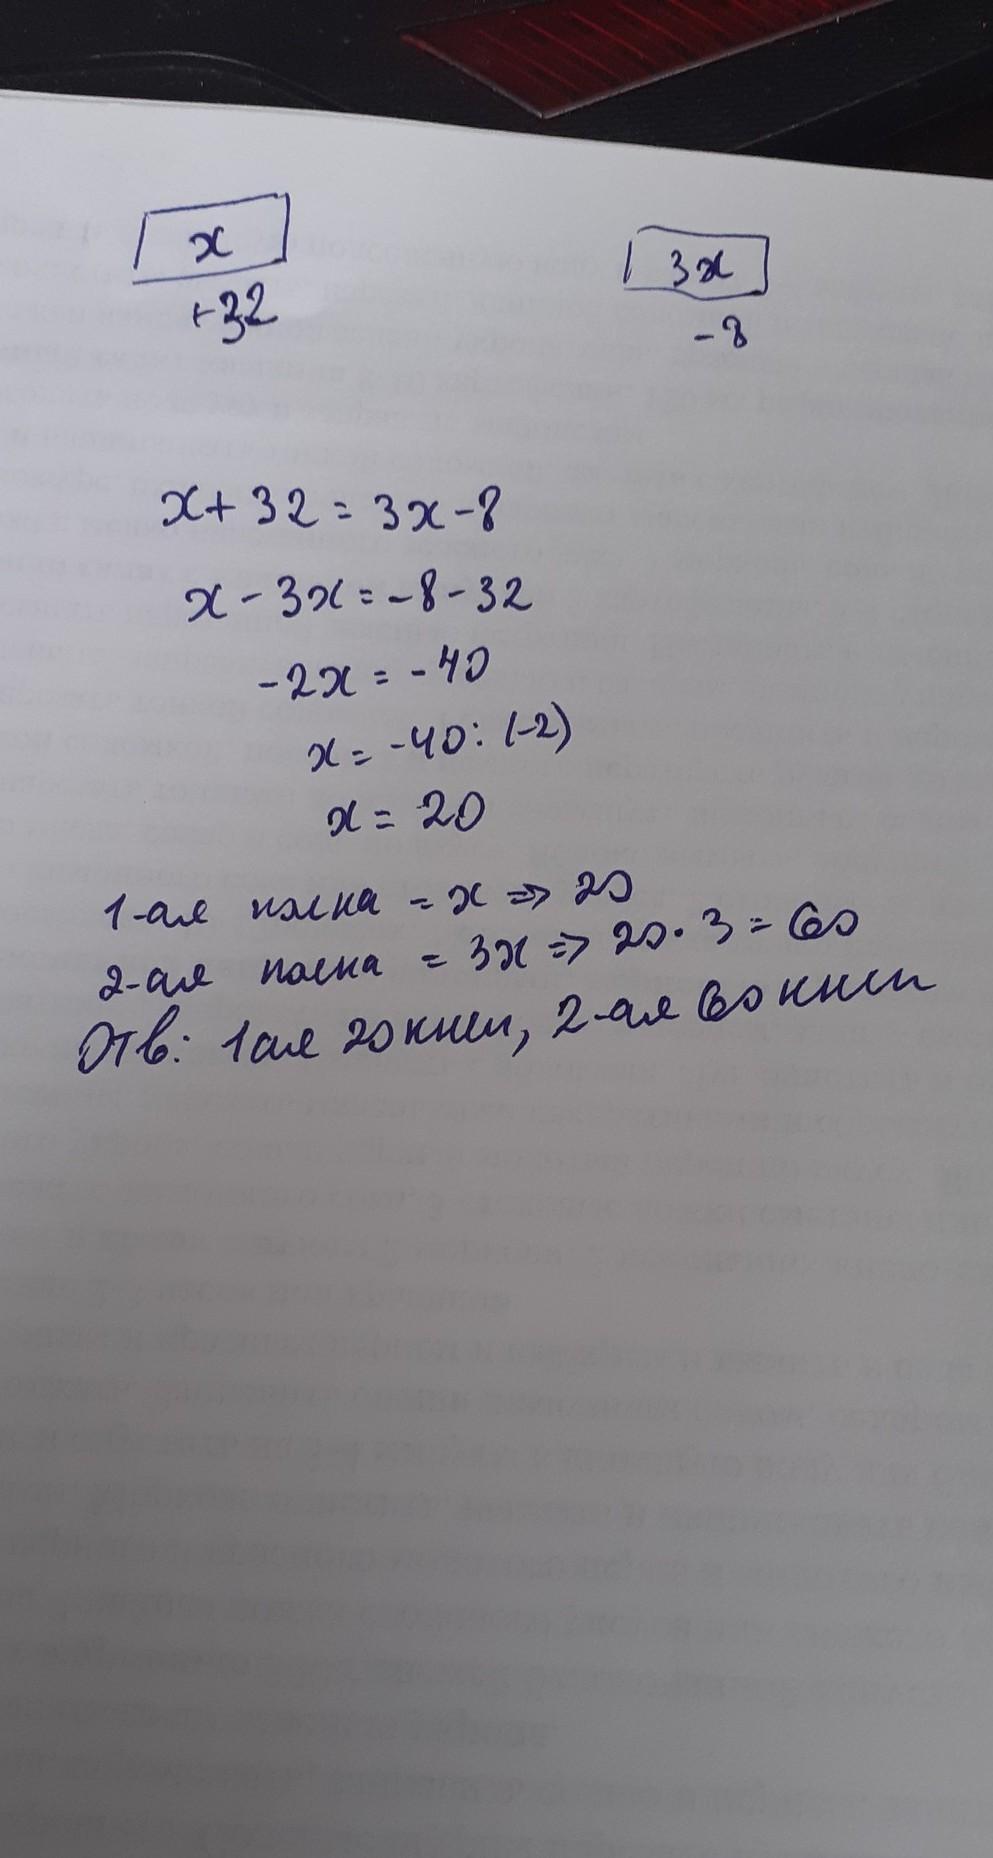 x 3x
+32 -8
x+32=3x-8
x-3x=-8-32
-2x=-40
x=-40:(-2)
x=20
1-ая полка = x => 20
2-ая полка = 3x => 20·3=60
Отв: 1ая 20 книг, 2-ая 60 книг